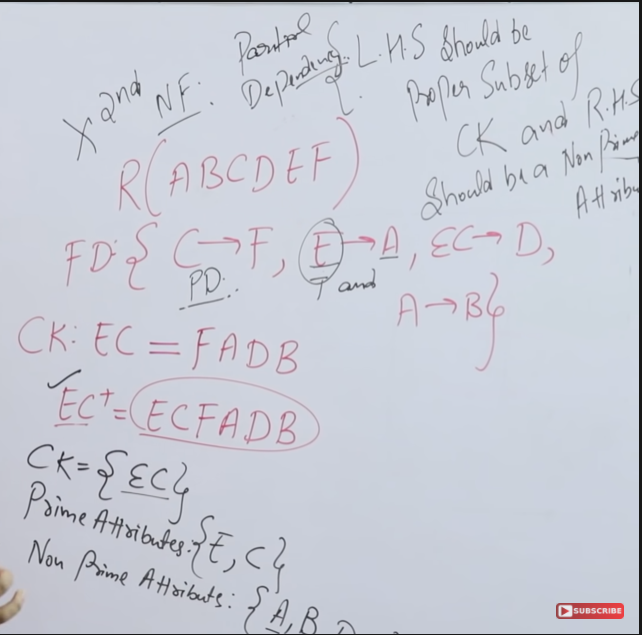 X 2nd NF: Partial Dependency: { L.H.S Should be
Proper Subset of
CK and R.H.S
Should be a Non Prime
Attribu
R(ABCDEF)
FD: { C→F, E→A, EC→D,
PD: and
A→B}
CK: EC = FADB
✓
EC+ = ECFADB
CK = {EC}
Prime Attributes: {E, C}
Non Prime Attributs: {A, B
SUBSCRIBE